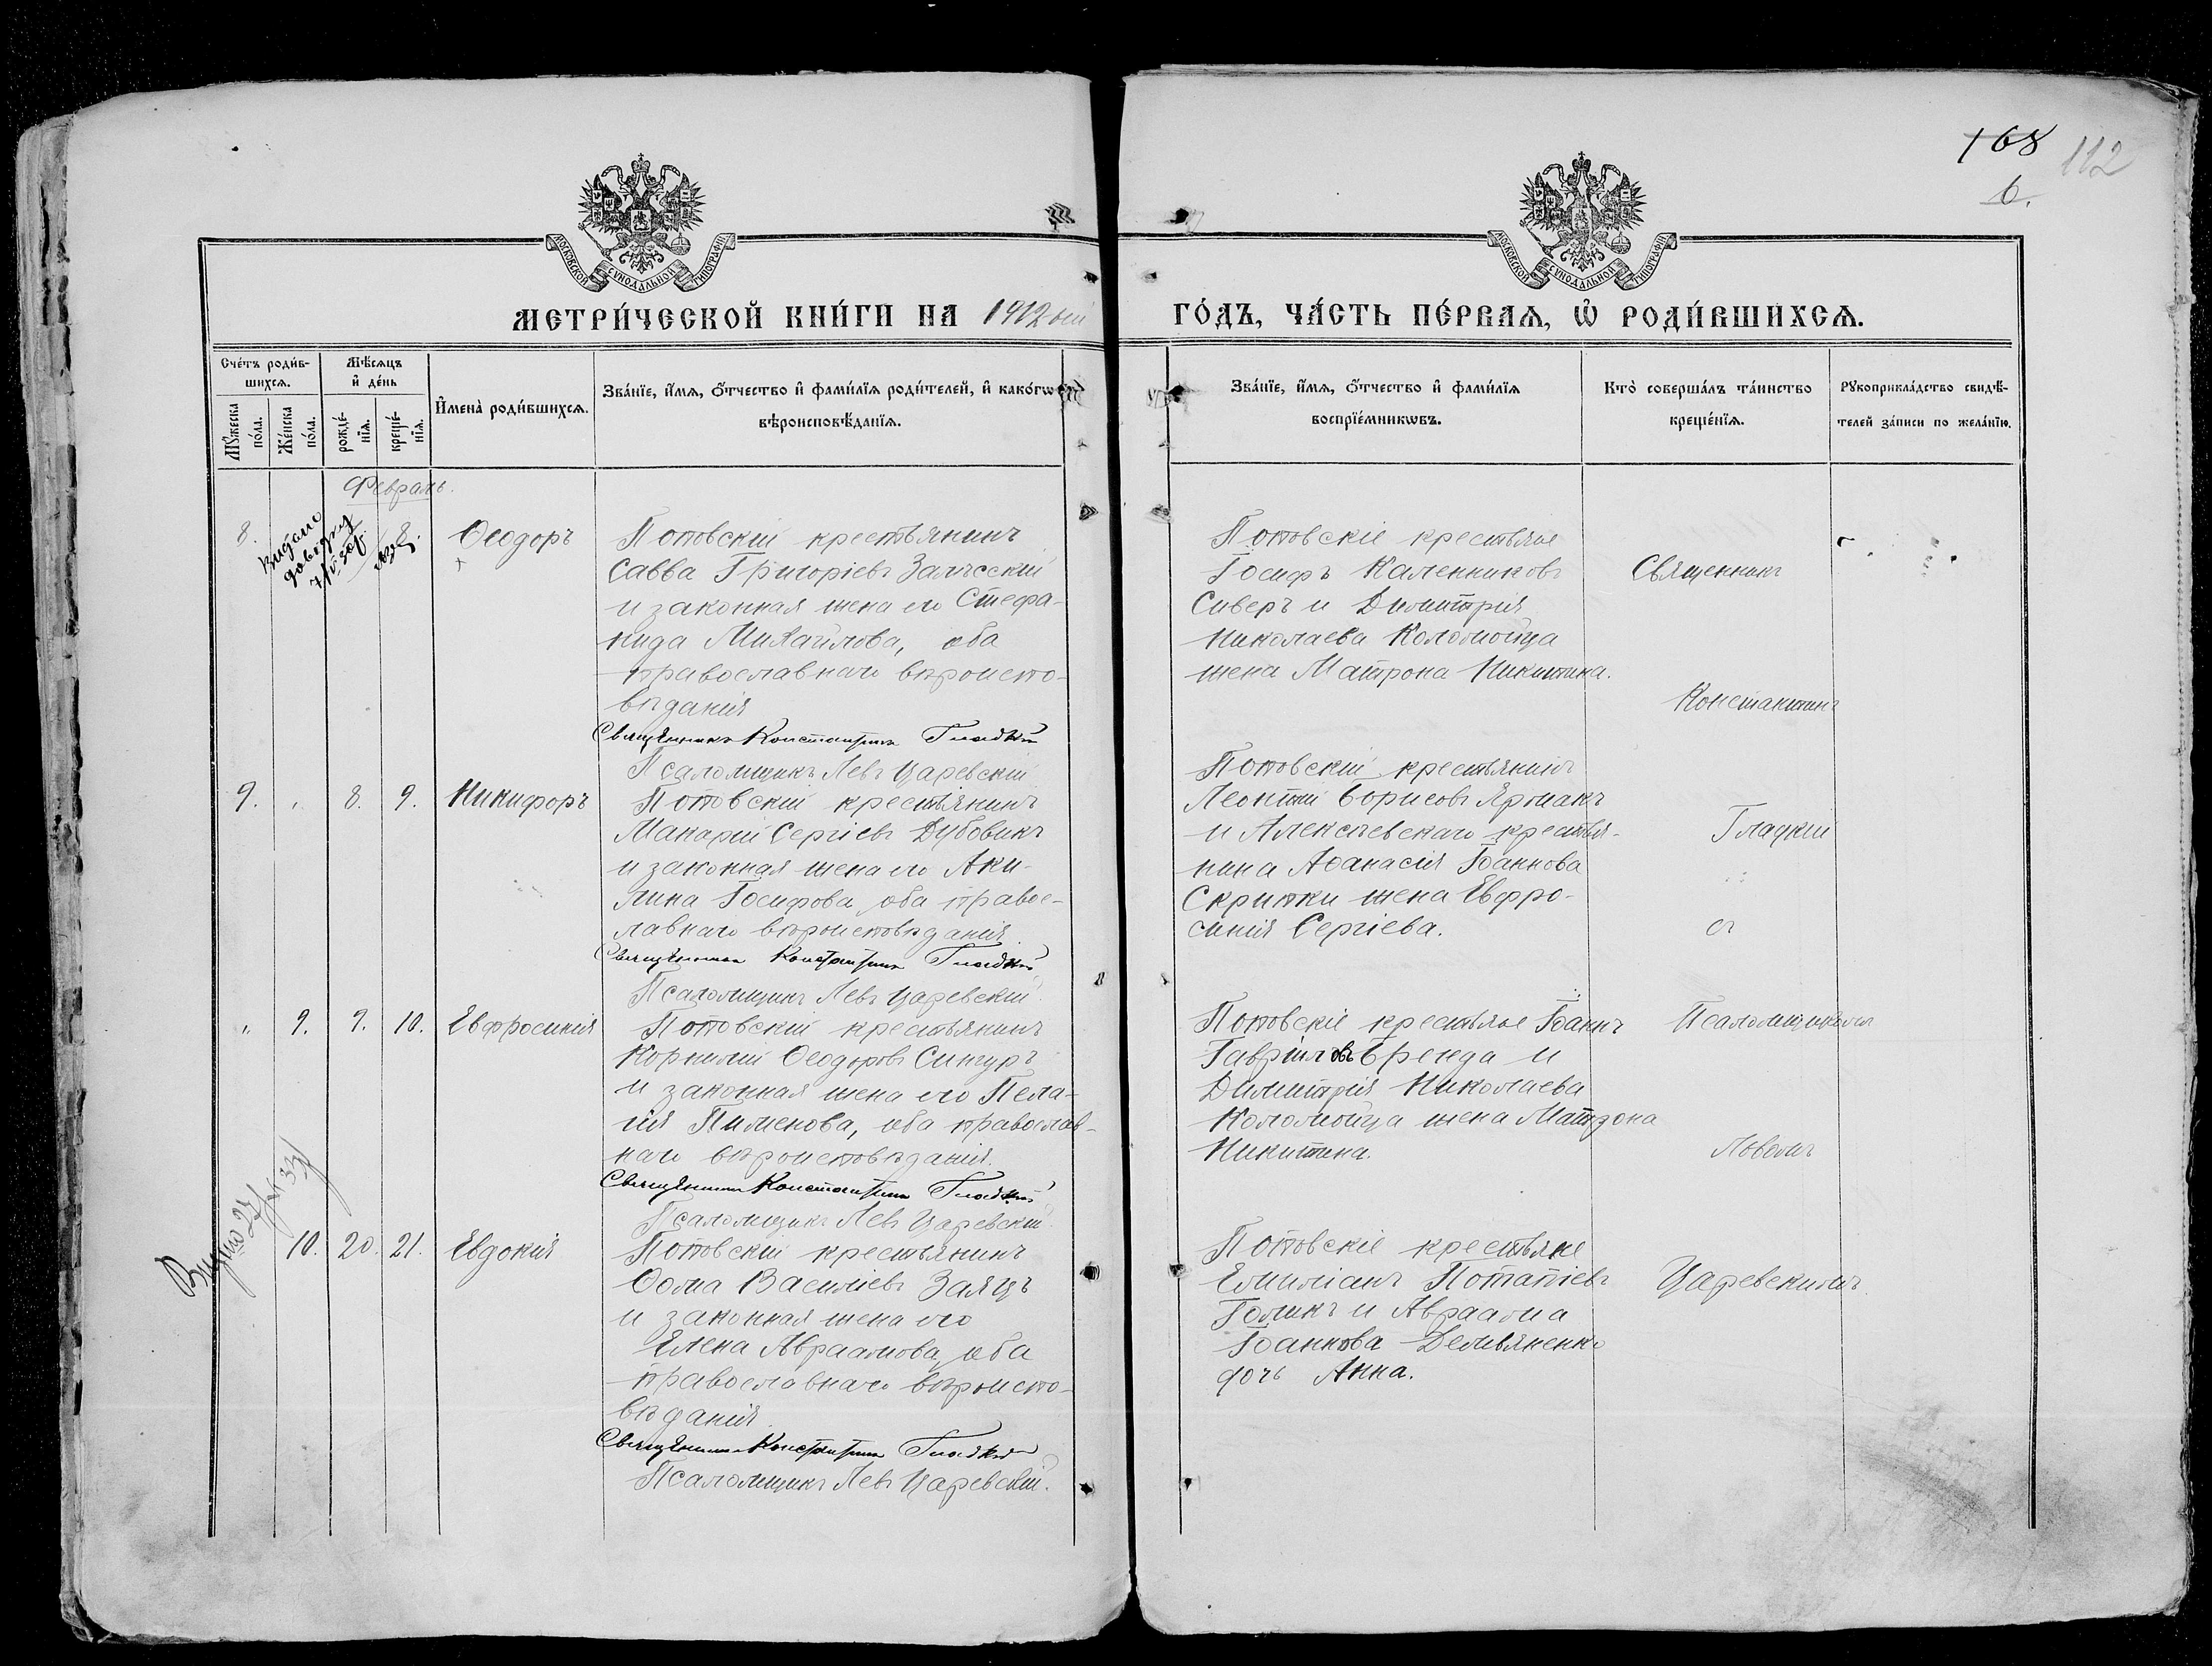 168
112
6.
МОСКОВСКОЙ СѴНОДАЛЬНОЙ ТИПОГРАФІИ
МОСКОВСКОЙ СѴНОДАЛЬНОЙ ТИПОГРАФІИ
МЕТРИ́ЧЕСКОЙ КНИ́ГИ НА 1912 ый
ГО́ДЪ, ЧА́СТЬ ПЕ́РВАѦ, Ѡ҆ РОДИ́ВШИХСѦ.
Сче́тъ роди́в-
шихсѧ.
Мѣ́сѧцъ
и҆ де́нь
Мꙋ́жеска
по́ла.
Же́нска
по́ла.
рожде́-
нїѧ.
креще́-
нїѧ.
И҆мена̀ роди́вшихсѧ.
Зва́нїе, и҆́мѧ, ѻ҆́тчество и҆ фами́лїѧ роди́телей, и҆ како́гѡ
вѣроисповѣ́данїѧ.
Зва́нїе, и҆́мѧ, ѻ҆́тчество и҆ фами́лїѧ
воспрїе́мникѡвъ.
Кто̀ соверша́лъ та́инство
креще́нїѧ.
Рꙋкоприкла́дство свидѣ́-
телей за́писи по жела́нїю.
Февраль.
8.
Видано
довідку
8.
Ѳеодоръ
Поповскій крестьянинъ
Савва Григоріевъ Залѣсскій
и законная жена его Стефа-
нида Михайлова, оба
православнаго вѣроиспо-
вѣданія
Священникъ Константинъ Гладкій
Псаломщикъ Левъ Царевскій
Поповскіе крестьяне
Іосифъ Каленниковъ
Сиверъ и Димитрія
Николаева Коломойца
жена Матрона Никитина.
Священникъ
Константинъ
9. " 8. 9. Никифоръ
Поповскій крестьянинъ
Макарій Сергіевъ Дубовикъ
и законная жена его Аки-
лина Іосифова, оба правос-
лавнаго вѣроисповѣданія.
Священникъ Константинъ Гладкій
Псаломщикъ Левъ Царевскій.
Поповскій крестьянинъ
Леонтій Борисовъ Ярмакъ
и Алексѣевскаго крестья-
нина Аѳанасія Іоаннова
Скрипки жена Евфро-
синія Сергіева.
Гладкій
съ
" 9. 9. 10. Евфросинія
Поповскій крестьянинъ
Корнилій Ѳеодоровъ Сингуръ
и законная жена его Пела-
гія Пименова, оба православ-
наго вѣроисповѣданія.
Священникъ Константинъ Гладкій
Псаломщикъ Левъ Царевскій.
Поповскіе крестьяне Іоаннъ
Гавріиловъ Бренда и
Димитрія Николаева
Коломойца жена Матрона
Никитина.
Псаломщикомъ
Львомъ
10. 20. 21. Евдокія
Поповскій крестьянинъ
Ѳома Василіевъ Заяцъ
и законная жена его
Елена Авраамова, оба
православнаго вѣроиспо-
вѣданія.
Священникъ Константинъ Гладкій
Псаломщикъ Левъ Царевскій.
Поповскіе крестьяне
Емиліанъ Потапіевъ
Голикъ и Авраама
Іоаннова Демьяненко
дочь Анна.
Царевскимъ